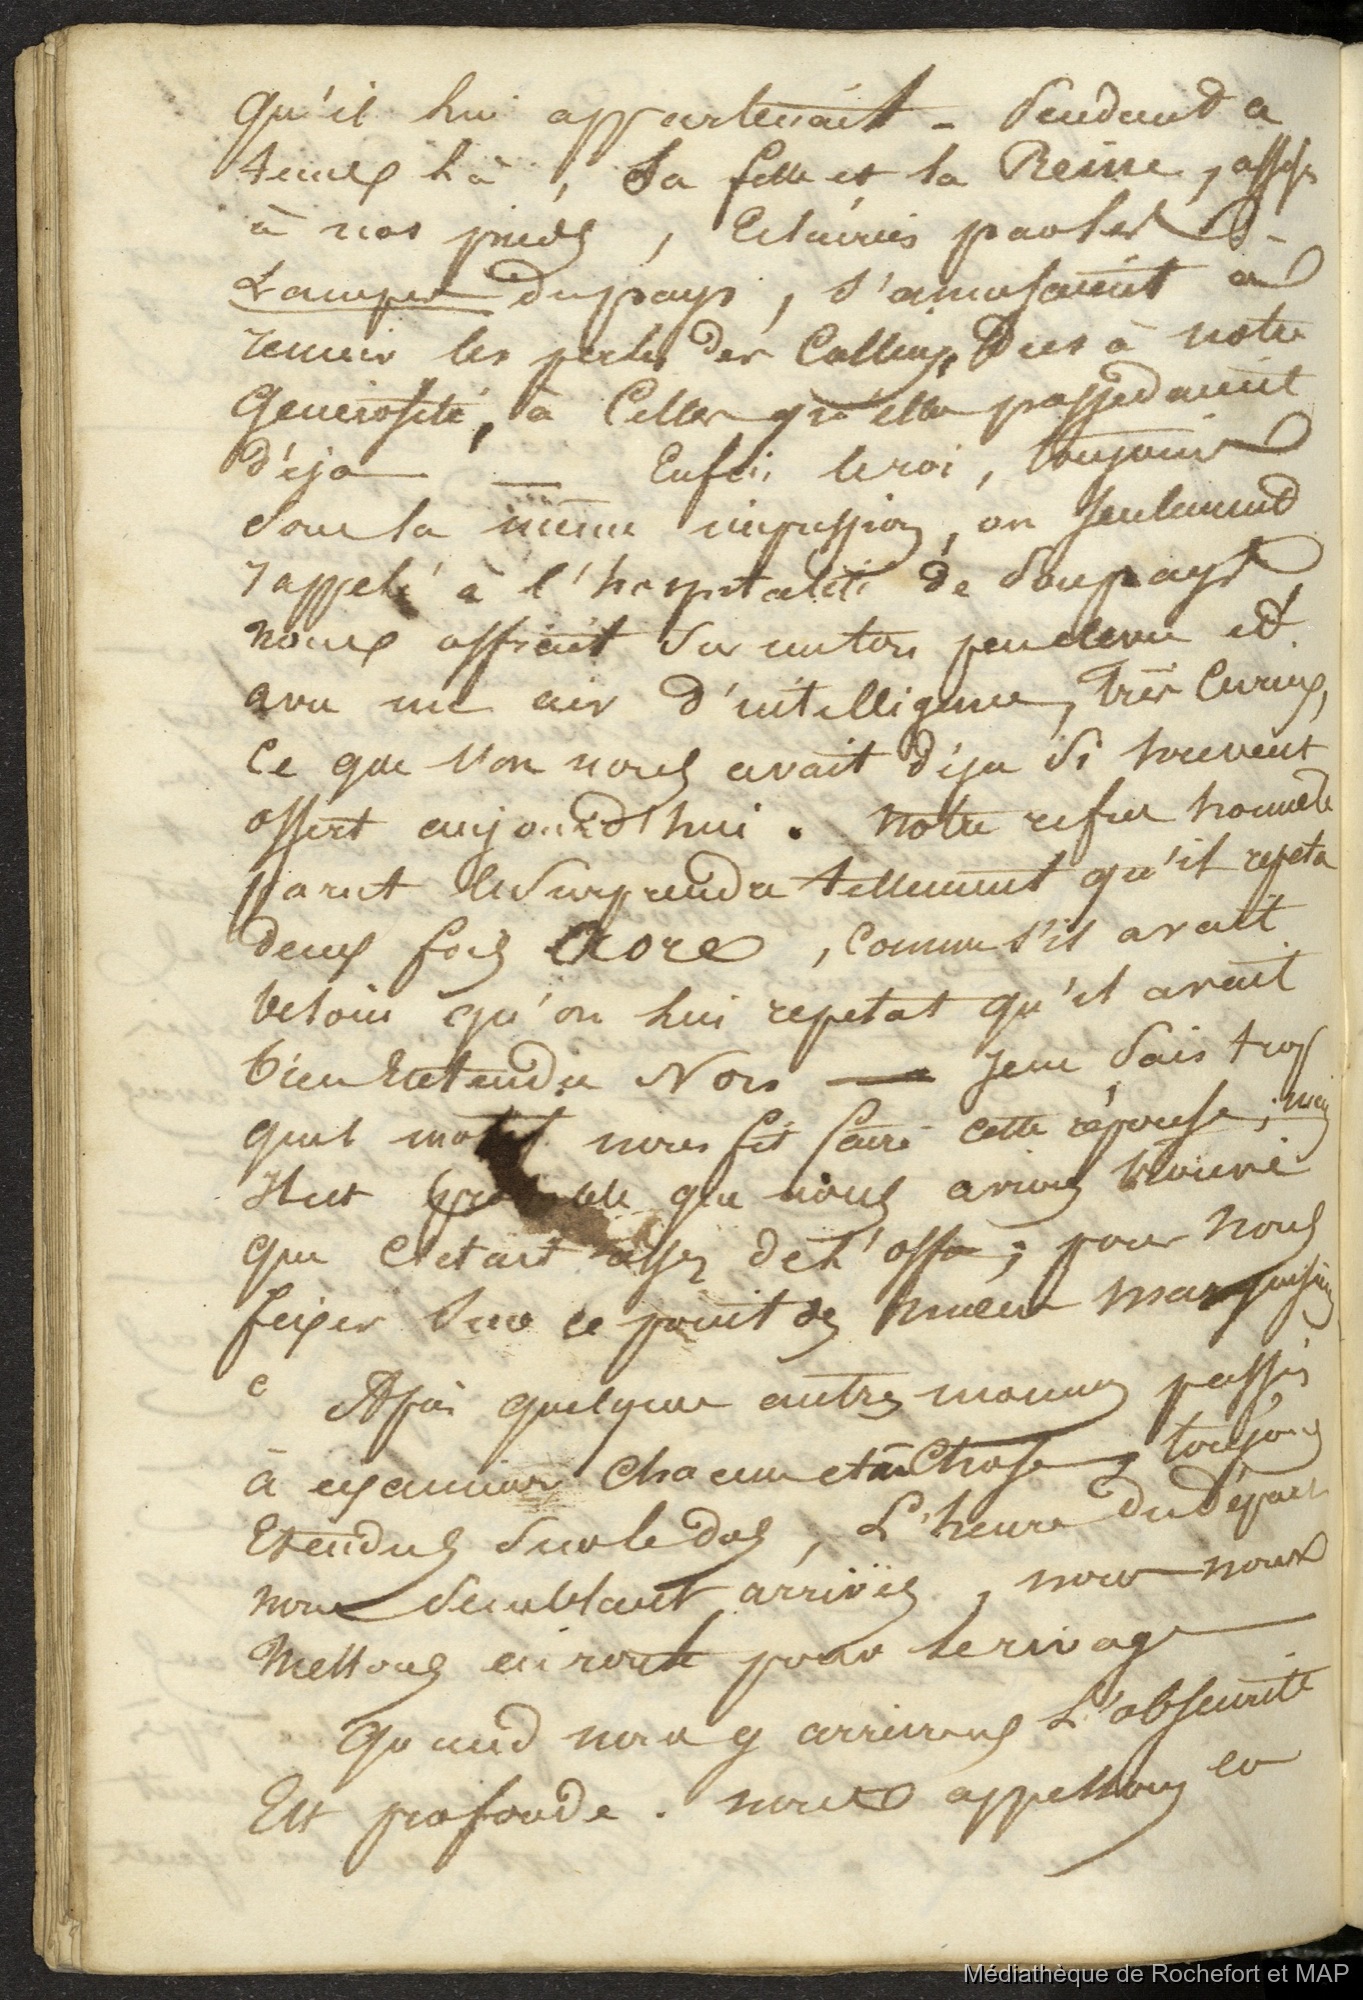 qu'il lui appartenait - Pendant ce
temps là, Sa fille et la Reine, assises
à nos pieds, Eclairées par les
Lampes du pays, s'amusaient à
reunir les perles des Colliers, Dues à notre
Generosité, à Celles qu'elles possedaient
déja — Enfin le roi, toujours
sous la même impression, ou seulement
rappelé à l'hospitalité de son pays
nous offrait sur un ton peu elevé et
avec un air d'intelligence, très Curieux,
Ce que l'on nous avait déja si souvent
offert aujourd'hui. Notre refus honnete
parut le surprendre tellement qu'il repeta
deux fois Aore, Comme s'il avait
besoin qu'on lui repetat qu'il avait
bien Entendu Non — Je ne sais trop
quel motif nous fit faire cette réponse, mais
Il est probable que nous avions trouvé
que C'etait assez de l'offre, pour nous
fixer sur ce point des moeurs marquisiennes
Après quelques autres moments passés
à examiner Chacune et Chose, toujours
Etendus sur le dos, L'heure du Départ
nous semblant arrivée, nous nous
Mettons en route pour le rivage
Quand nous y arrivons L'obscurité
Est profonde. nous appellons en
Médiathèque de Rochefort et MAP